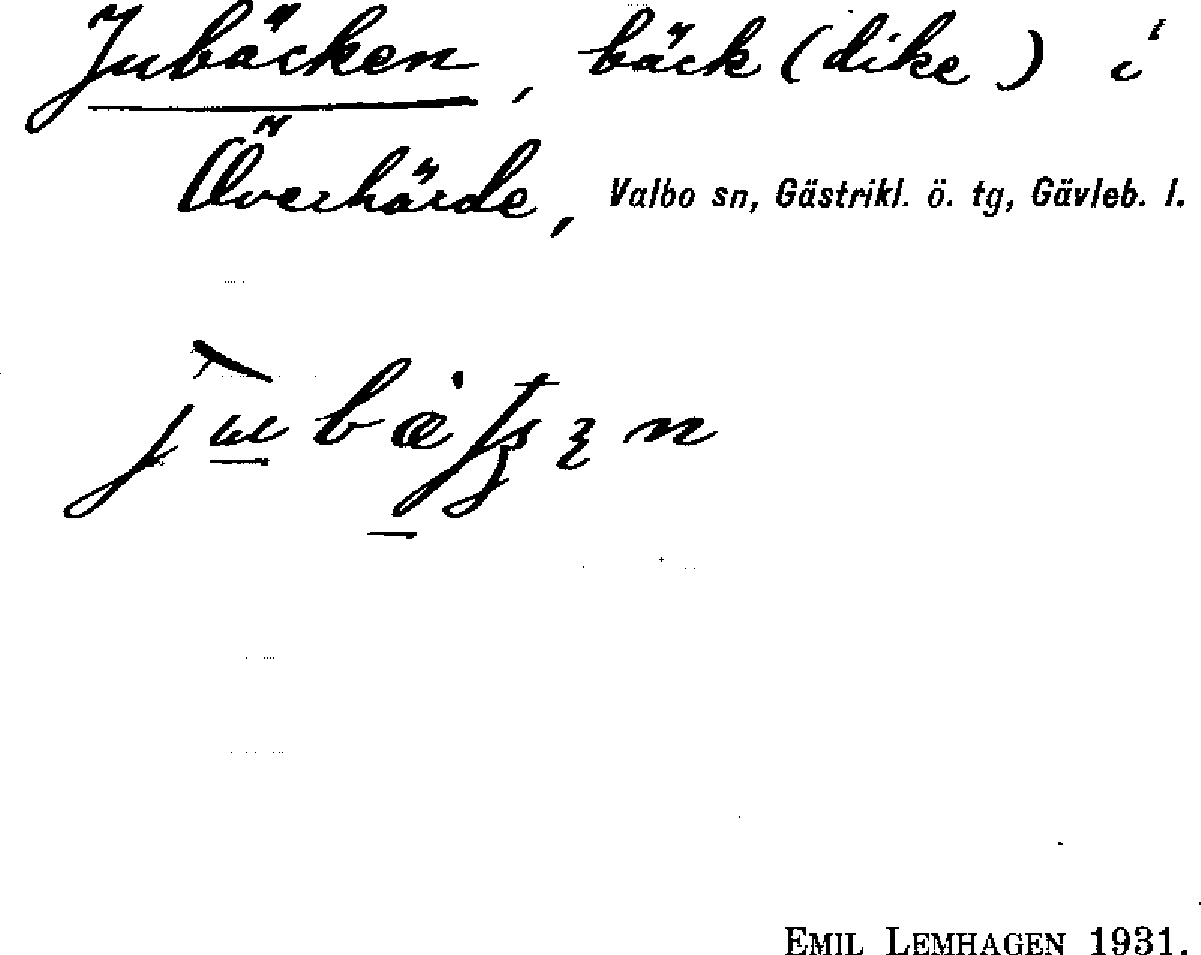 Jubäcken, bäck (dike) i
Överhärde, Valbo sn, Gästrikl. ö. tg, Gävleb. l.
EMIL LEMHAGEN 1931.